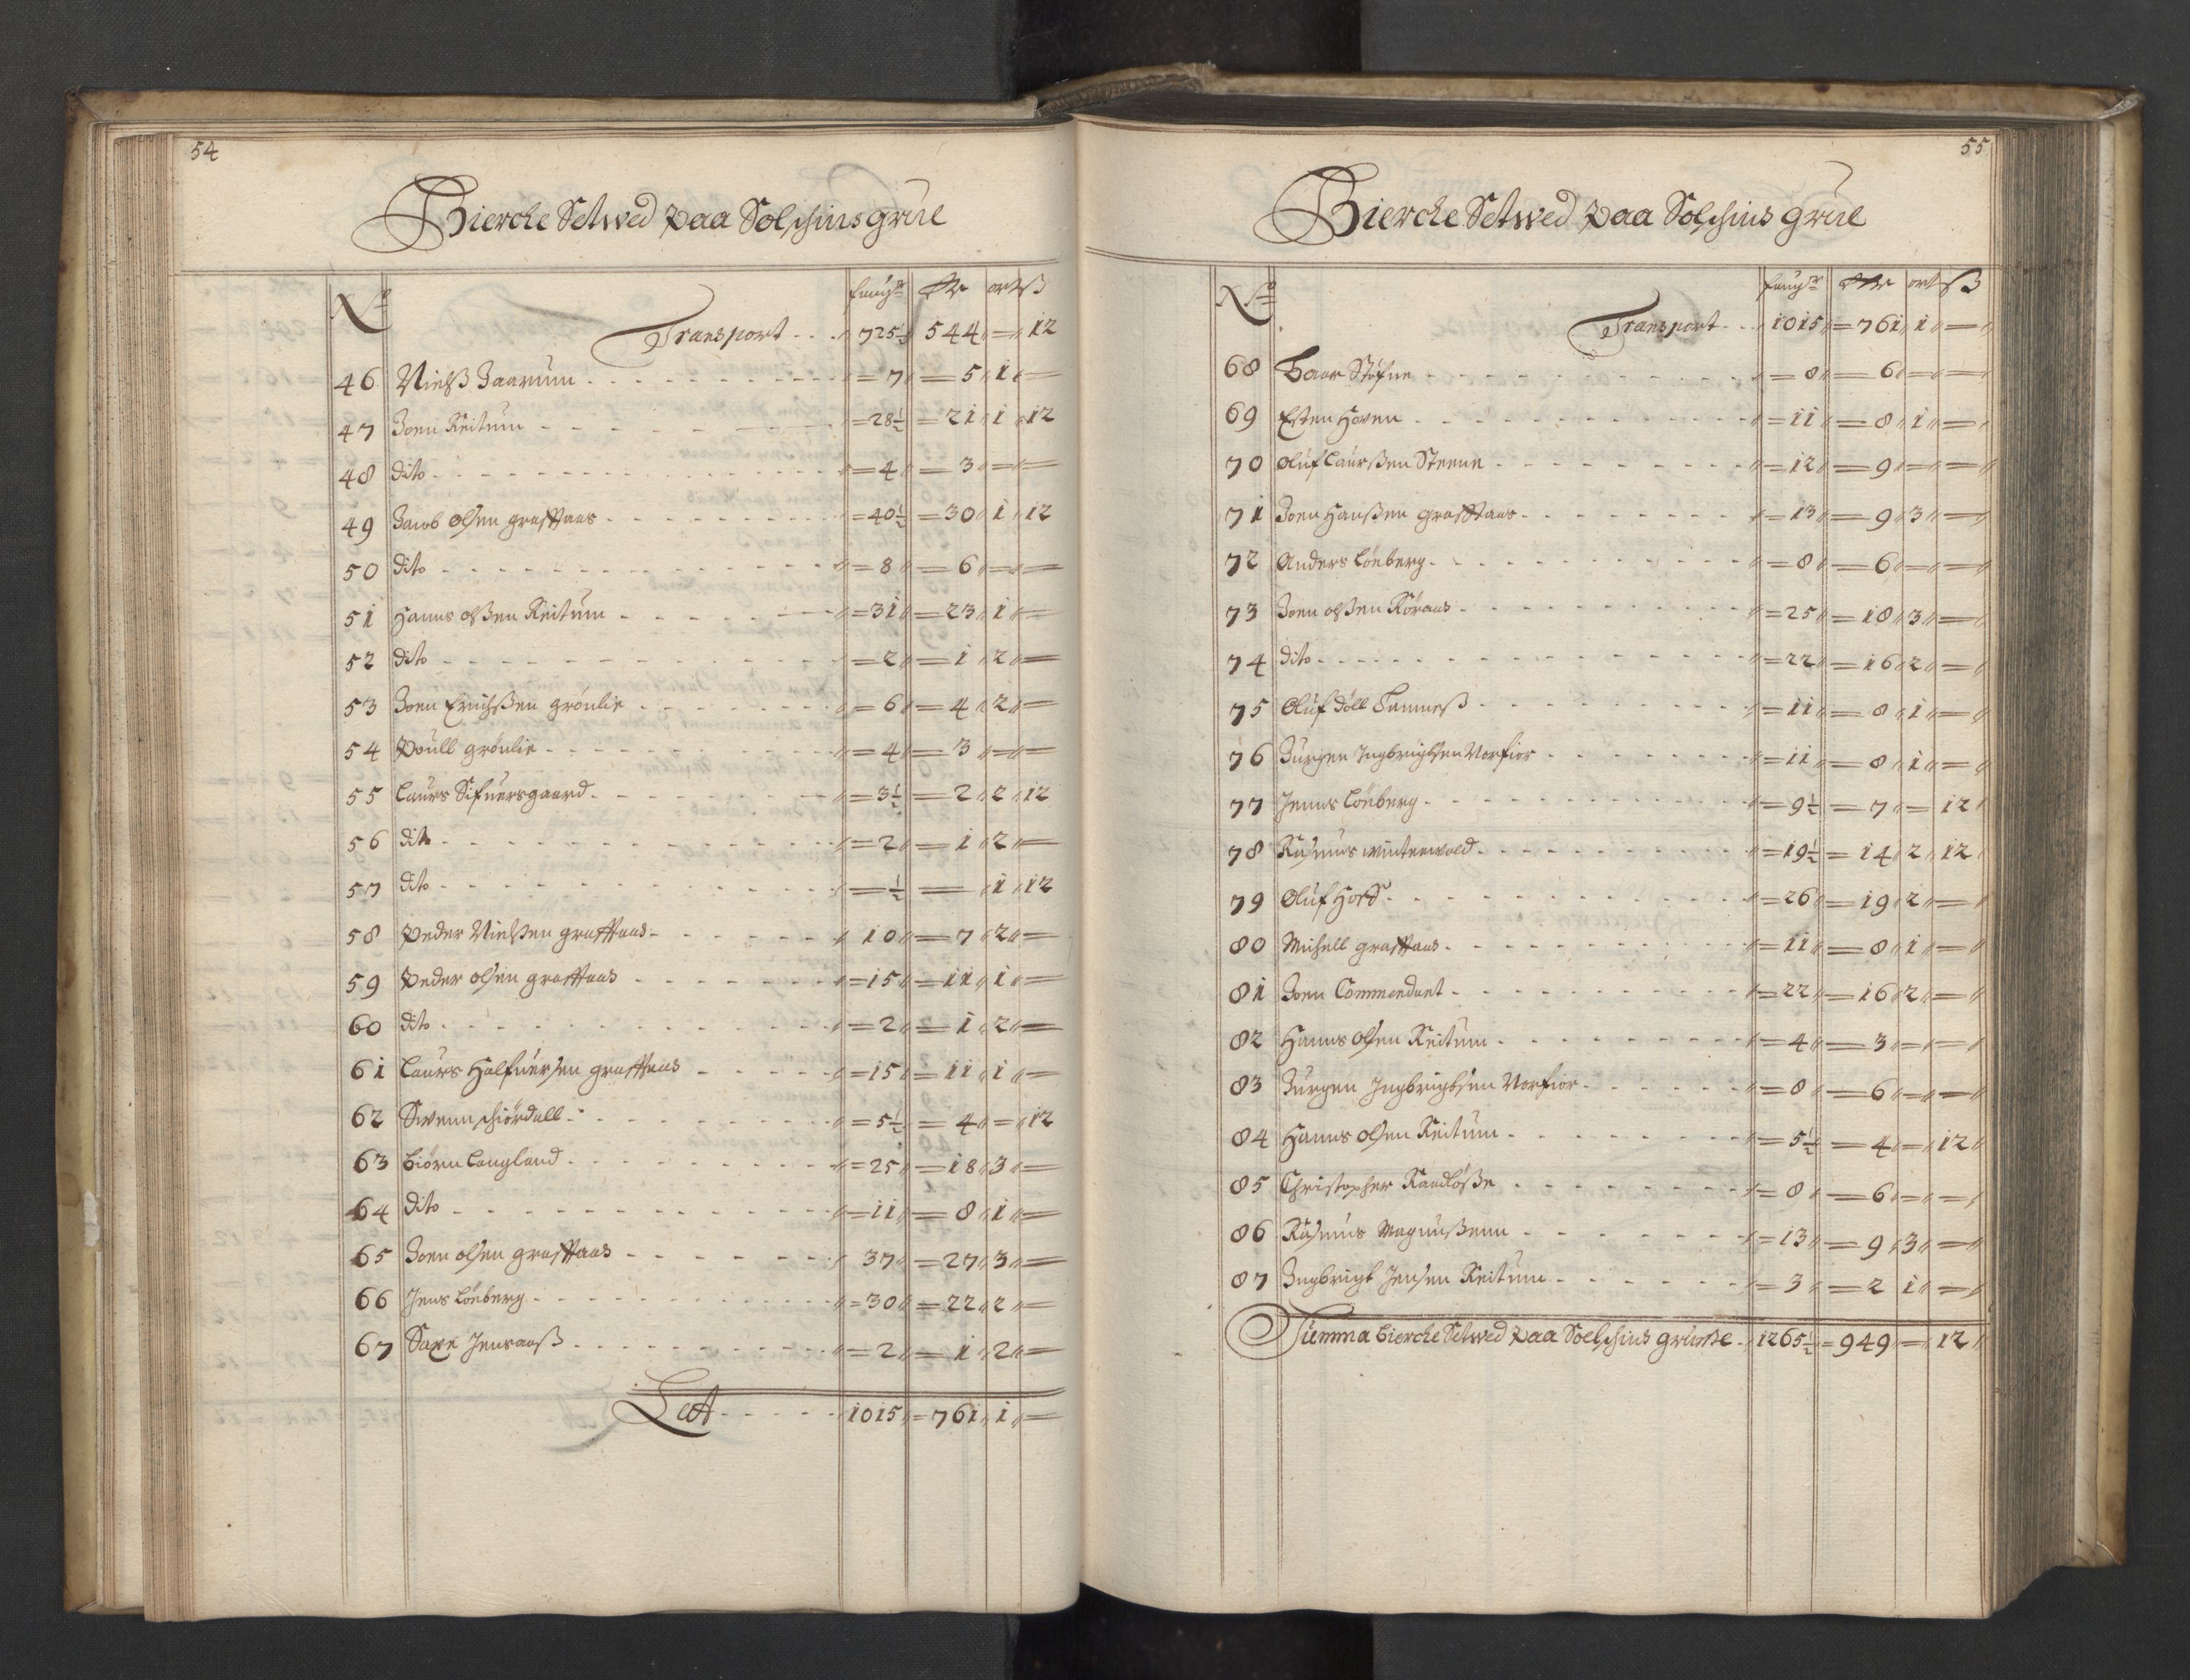 54
Bierche Setwed Paa Solschins grúe
No faugr Rdr ort ß
Transport - - - 725½ 544 = 12
46 Nielß Jaarúm - - - 7 = 5 1 =
47 Joen Reitum - - - 28½ = 21 1 12
48 dito - - - 4 = 3 = =
49 Jacob Olsen graffaas - - - 40½ = 30 1 12
50 dito - - - 8 = 6 = =
51 Hanns olßen Reitum - - - 31 = 23 1 =
52 dito - - - 2 = 1 2 =
53 Joen Erichßen grönlie - - - 6 = 4 2 =
54 Poúll grönlie - - - 4 = 3 = =
55 Laurs Sifuersgaard - - - 3½ = 2 2 12
56 dito - - - 2 = 1 2 =
57 dito - - - ½ = 1 12
58 Peder Nielßen graffaas - - - 10 = 7 2 =
59 Peder olsen graffaas - - - 15 = 11 1 =
60 dito - - - 2 = 1 2 =
61 Laurs Halfuersen graffaas - - - 15 = 11 1 =
62 Swenn schiördall - - - 5½ = 4 = 12
63 Biörn Langland - - - 25 = 18 3 =
64 dito - - - 11 = 8 1 =
65 Joen olsen graffaas - - - 37 = 27 3 =
66 Jens Löuberg - - - 30 = 22 2 =
67 Saxe Jensaaß - - - 2 = 1 2 =
Lat - - - 1015 = 761 1 =
55
Bierche Setwed Paa Solschins grúe
No faugr Rdr ort ß
Transport - - - 1015 = 761 1 =
68 Baar Stöfne - - - 8 = 6 = =
69 Esten Hoven - - - 11 = 8 1 =
70 Oluf Laurßen Steene - - - 12 = 9 = =
71 Joen Hanßen graffaas - - - 13 = 9 3 =
72 Anders Löuberg - - - 8 = 6 = =
73 Joen olßen Röraas - - - 25 = 18 3 =
74 dito - - - 22 = 16 2 =
75 Oluf döll - - - 11 = 8 1 =
76 Jurgen Ingbrigtsen Norfior - - - 11 = 8 1 =
77 Jenns Löuberg - - - 9½ = 7 = 12
78 Rasmus wintervold - - - 19½ = 14 2 12
79 Oluf Hoff - - - 26 = 19 2 =
80 Michell graffaas - - - 11 = 8 1 =
81 Joen Commendant - - - 22 = 16 2 =
82 Hanns Olsen Reitum - - - 4 = 3 = =
83 Jurgen Ingbrigtsen Norfior - - - 8 = 6 = =
84 Hanns olsen Reitum - - - 5½ = 4 = 12
85 Christopher - - - 8 = 6 = =
86 Rasmus Magnußenn - - - 13 = 9 3 =
87 Ingbrigt Jensen Reitum - - - 3 = 2 1 =
Summa Bierche Setwed Paa Soelschins - 1265½ = 949 = 12